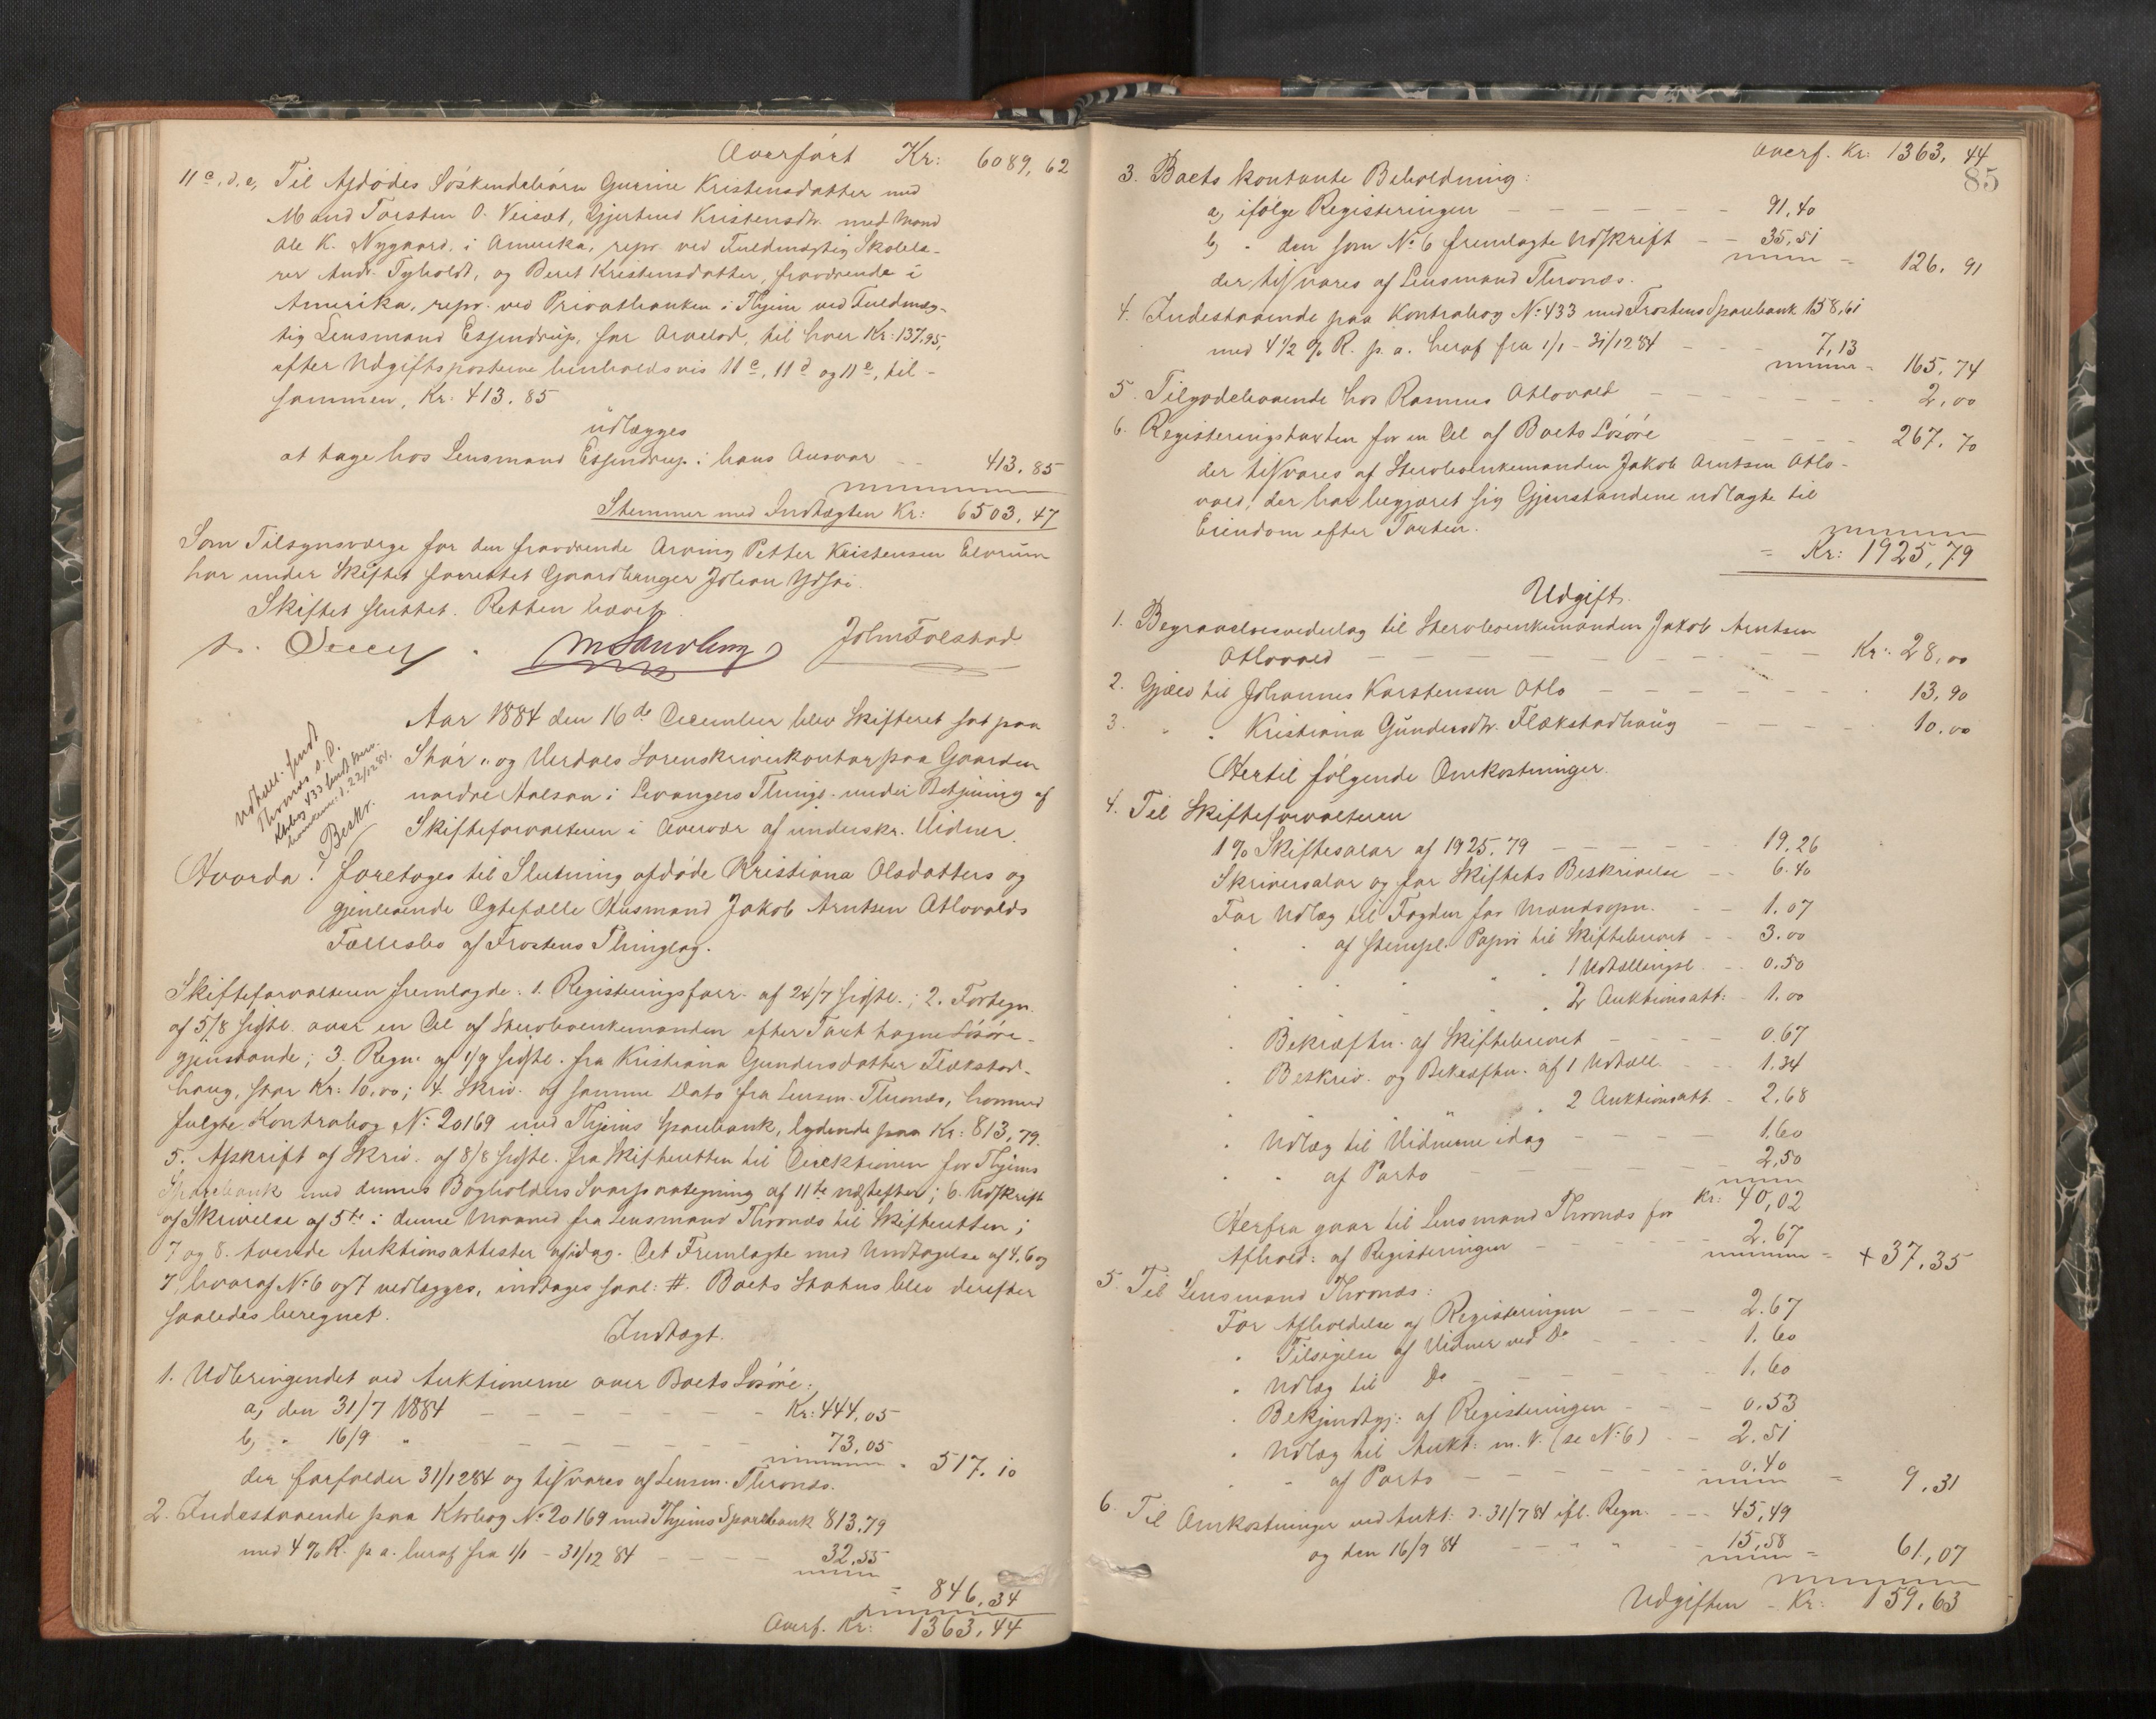 Overført Kr: 6089,62
11 c, d, e, Til Afdødes Søskendebørn Gurine Kristensdatter med
Mand Torsten O. Veiset, Gjertrud Kristensdtr. med Mand
Ole K. Nygaard, i Amerika, repr. ved Fuldmægtig Skolelæ-
rer Andr. Tyholdt, og Beret Kristensdatter, fraværende i
Amerika, repr. ved Privatbanken i Thjem ved Fuldmæg-
tig Lensmand Essendrup, for Arvelod, til hver Kr: 137,95,
efter Udgiftsposterne henholdsvis 11 c, 11 d og 11 e, til-
sammen, Kr: 413.85
udlægges
at tage hos Lensmand Essendrup i hans Ansvar 413,85
Stemmer med Indtægten Kr: 6503,47
Som Tilsynsværge for den fraværende Arving Petter Kristensen Elvrum
har under Skiftet forrettet Gaardbruger Johan Ydse.
Skiftet sluttet. Retten hævet.
M Sandberg John Folstad
Aar 1884 den 16de December blev Skifteret sat paa
Stør- og Værdals Sorenskriverkontor paa Gaarden
nordre Aalsaa i Levangers Thingl. under Betjening af
Skifteforvalteren i Overvær af underskr. Vidner.
Udtæll. sendt
Thronæs s. D.
Ktrbog 433 sendt
d. 22/12 84.
Beskr.
Hvorda: foretoges til Slutning afdøde Kristiana Olsdatters og
gjenlevende Ægtefælle Husmand Jakob Arntsen Atlovalds
Fællesbo af Frostens Thinglag.
Skifteforvalteren fremlagde: 1. Registeringsforr. af 24/7 sidstl.; 2. Fortegn.
af 5/8 sidstl. over en Del af Stervboenkemanden efter Taxt tagne Løsøre-
gjenstande; 3. Regn. af 1/9 sidstl. fra Kristiana Gundersdatter Flækstad-
haug, stor Kr: 10,00; 4. Skriv. af samme Dato fra Lensm. Thronæs, hvormed
fulgte Kontrabog No 20169 med Thjems Sparebank, lydende paa Kr: 813,79.
5. Afskrift af Skriv. af 8/8 sidstl. fra Skifteretten til Direktionen for Thjems
Sparebank med dennes Bogholders Svarspaategning af 11te næstefter; 6. Udskrift
af Skrivelse af 5te i denne Maaned fra Lensmand Thronæs til Skifteretten;
7 og 8. tvende Auktionsattester afidag. Det Fremlagte med Undtagelse af 4, 6 og
7, hvoraf No 6 og 7 vedlægges, indtages saal: #. Boets Status blev derefter
saaledes beregnet.
Indtægt.
1. Udbringendet ved Auktionerne over Boets Løsøre:
a, den 31/7 1884 Kr: 444,05
b, " 16/9 " 73,05
= 517,10
der forfalder 31/12 84 og tilsvares af Lensm. Thronæs.
2. Indestaaende paa Ktrbog No 20169 med Thjems Sparebank 813,79
med 4% R. p. a. heraf fra 1/1 - 31/12 84 32,55
= 846,34
Overf. Kr: 1363,44
Overf. Kr: 1363,44
85
3. Boets kontante Beholdning:
a, ifølge Registeringen 91,40
b, " den som No 6 fremlagte Udskrift 35,51
= 126,91
der tilsvares af Lensmand Thronæs.
4. Indestaaende paa Kontrabog No 433 med Frostens Sparebank 158,61
med 4 1/2 % R. p. a. heraf fra 1/1 - 31/12 84 7,13
= 165,74
5. Tilgodehavende hos Rasmus Atlovald 2,00
6. Registeringstaxten for en Del af Boets Løsøre 267,70
der tilsvares af Stervboenkemanden Jakob Arntsen Atlo-
vald, der har begjæret sig Gjenstandene udlagte til
Eiendom efter Taxten.
= Kr: 1925,79
Udgift.
1. Begravelsesvederlag til Stervboenkemanden Jakob Arntsen
Atlovald Kr: 28,00
2. Gjæld til Johannes Karstensen Atlo 13,90
3. " " Kristiana Gundersdtr. Flækstadhaug 10,00
Hertil følgende Omkostninger.
4. Til Skifteforvalteren
1% Skiftesalar af 1925,79 19.26
Skriversalar og for Skiftets Beskrivelse 6.40
For Udlæg til Fogden for Mandsopn. 1.07
" " af stempl. Papir til Skiftebrevet 3.00
" " " " " 1 Udtællingsl. 0.50
" " " " " 2 Auktionsatt: 1.00
" Bekræftn. af Skiftebrevet 0.67
" Beskriv. og Bekræftn. af 1 Udtæll. 1.34
" " " 2 Auktionsatt. 2.68
" Udlæg til Vidnerne idag 1.60
" " af Porto 2,50
Kr: 40,02
Herfra gaar til Lensmand Thronæs for
Afhold: af Registeringen 2.67
= + 37.35
5. Til Lensmand Thronæs:
For Afholdelse af Registeringen 2.67
" Tilsigelse af Vidner ved Do 1.60
" Udlæg til Do 1.60
" Bekjendtgj: af Registeringen 0.53
" Udlæg til Aukt: m. V. (se No 6) 2.51
" " af Porto 0.40
= 9.31
6. Til Omkostninger ved Aukt: d. 31/7 84 ifl. Regn. 45,49
og den 16/9 84 " " 15,58
= 61,07
Udgiften = Kr: 159,63